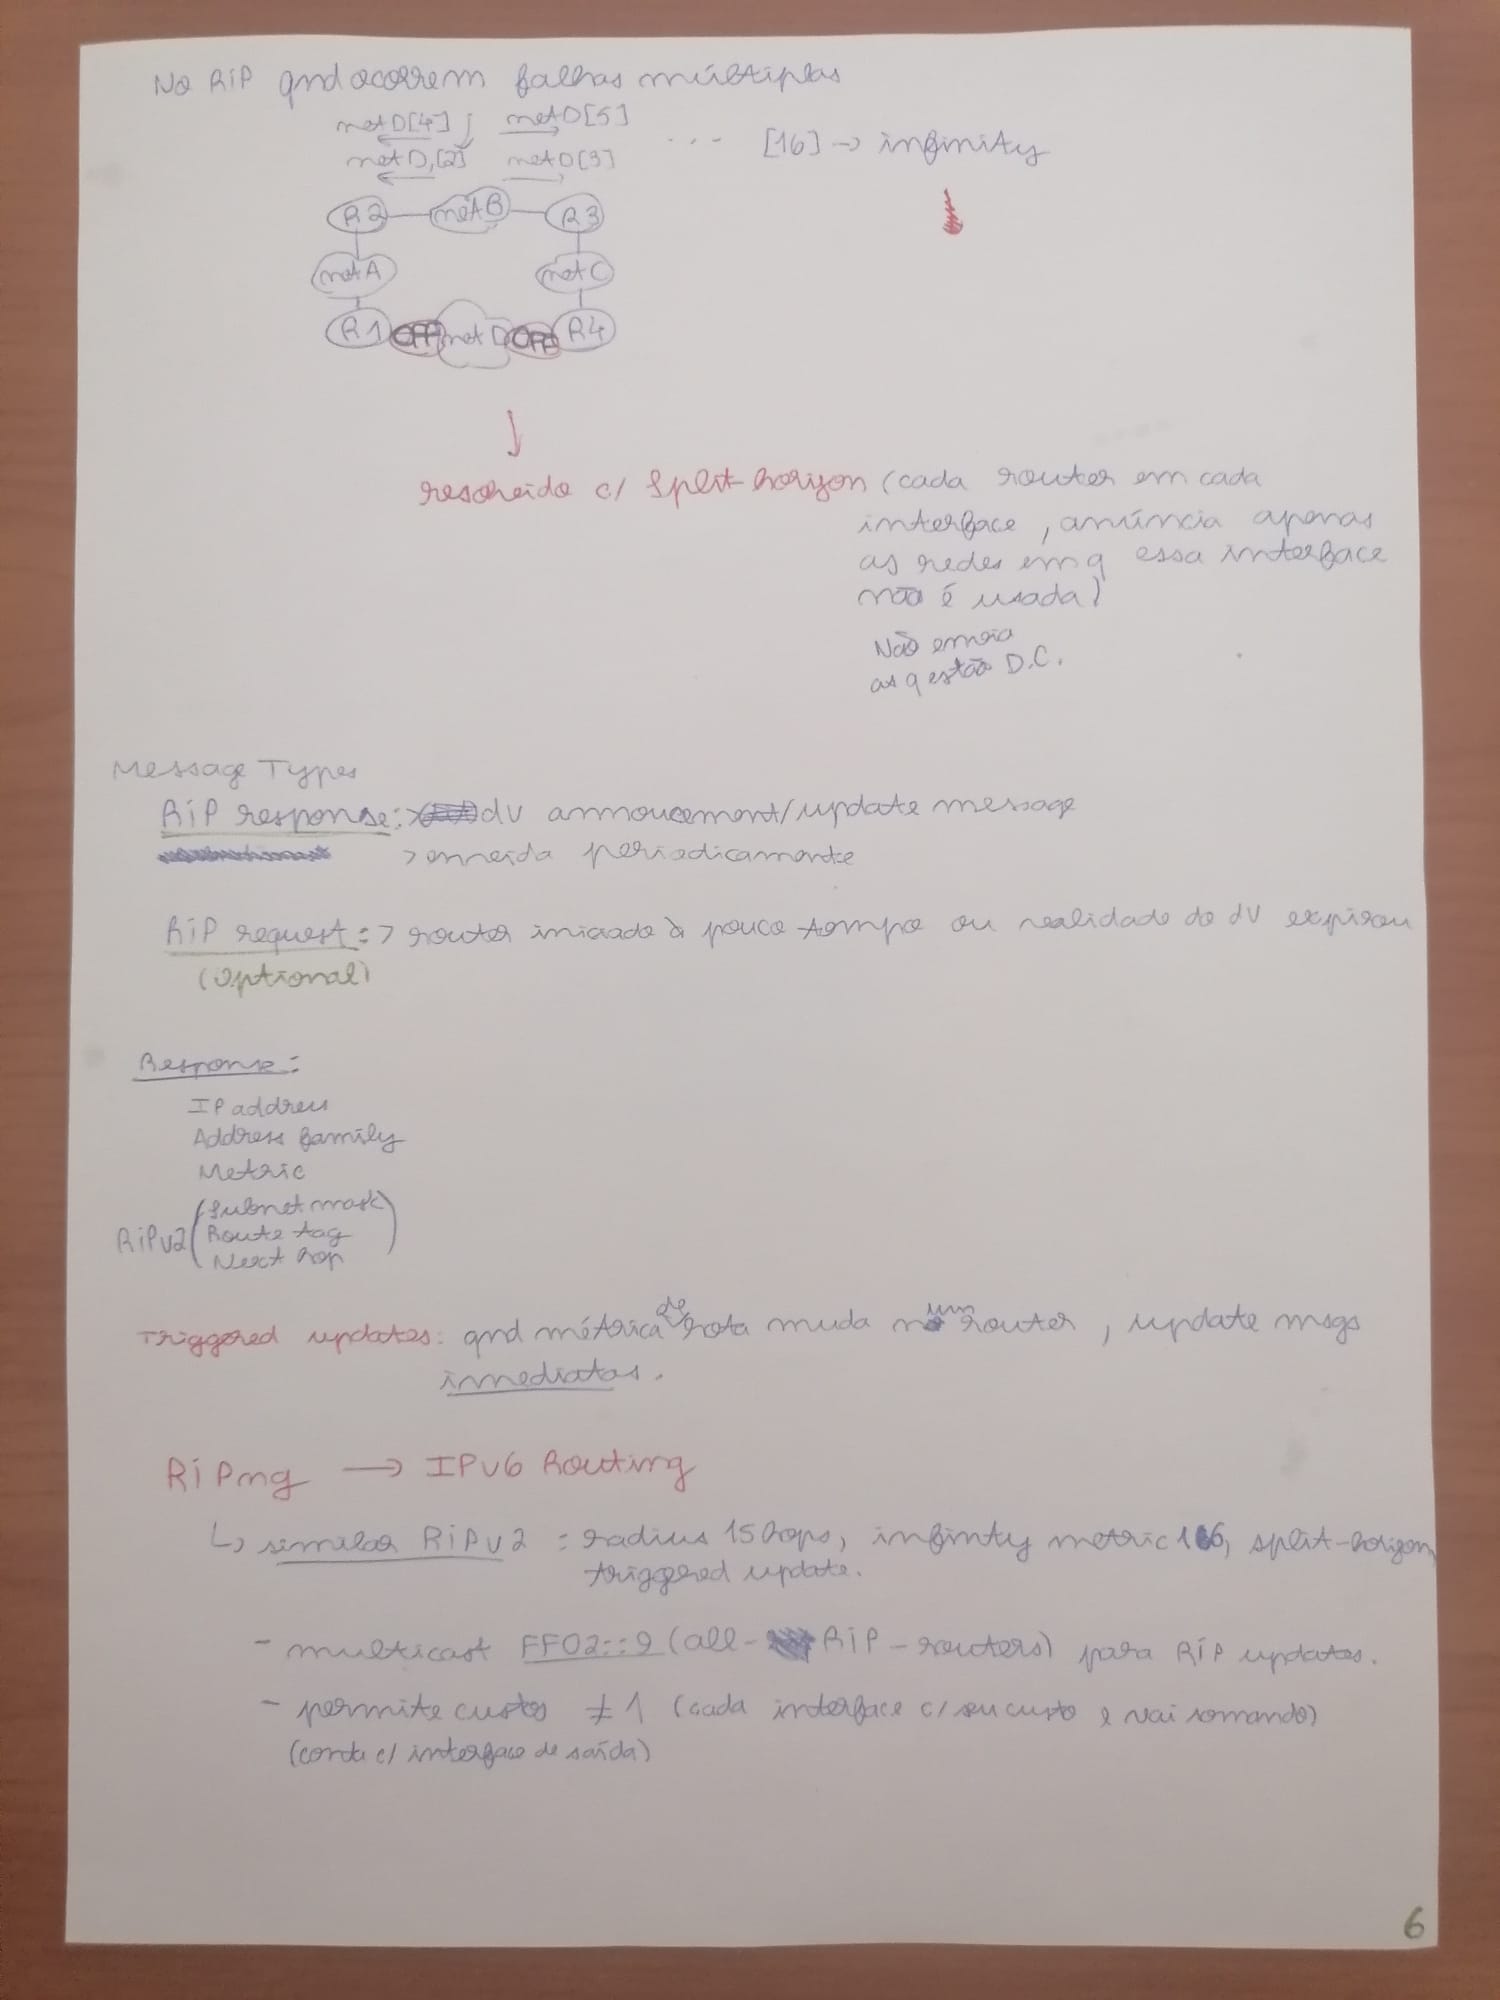 No RiP qnd ocorrem falhas múltiplas
netD[4] netD[5]
netD,[2] netD[3] ... [16] → infinity
R2 netB R3
netA netC
R1 OFF net D OFF R4
resolvido c/ Split-horizon (cada router em cada
interface, anúncia apenas
as redes em q essa interface
não é usada)
Não envia
as q estão D.C.
Message Types
RiP response: dv annoucement/update message
> enviada periodicamente
RiP request: > router iniciado à pouco tempo ou realidade do dv expirou
(Optional)
Response:
IP address
Address family
Metric
(Subnet mask)
RiPv2 Route tag
Next hop
Triggered updates: qnd métrica de rota muda num router, update msgs
imediatas.
RiPng → IPv6 Routing
↳ similar RiPv2 : radius 15 hops, infinty metric 16, split-horizon,
triggered update.
- multicast FF02::9 (all-RiP-routers) para RiP updates.
- permite custos ≠ 1 (cada interface c/ seu custo e vai somando)
(conta c/ interface de saída)
6